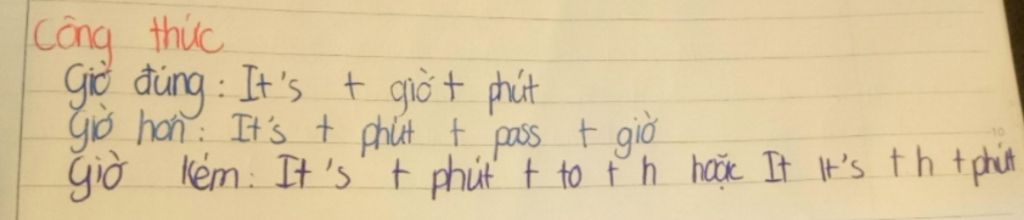 Công thức
Giờ đúng: It's + giờ + phút
Giờ hơn: It's + phút + pass + giờ
Giờ kém: It's + phút + to + h hoặc It It's + h + phút